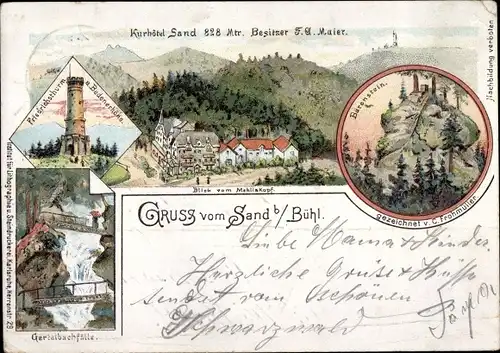 Kurhôtel Sand 828 Mtr. Besitzer F. A. Maier.
Nachbildung verboten
Friedrichsthurm
a. Badenerhöhe
Bärenstein.
Blick vom Mehliskopf.
gezeichnet v. C. Frohmüller
Gertelbachfälle.
Institut für Lithographie u. Steindruckerei, Karlsruhe, Herrenstr. 29
Gruss vom Sand b/ Bühl.
Liebe Mama & Kinder
Herzliche Grüße & Küsse
sendet vom schönen
Schwarzwald